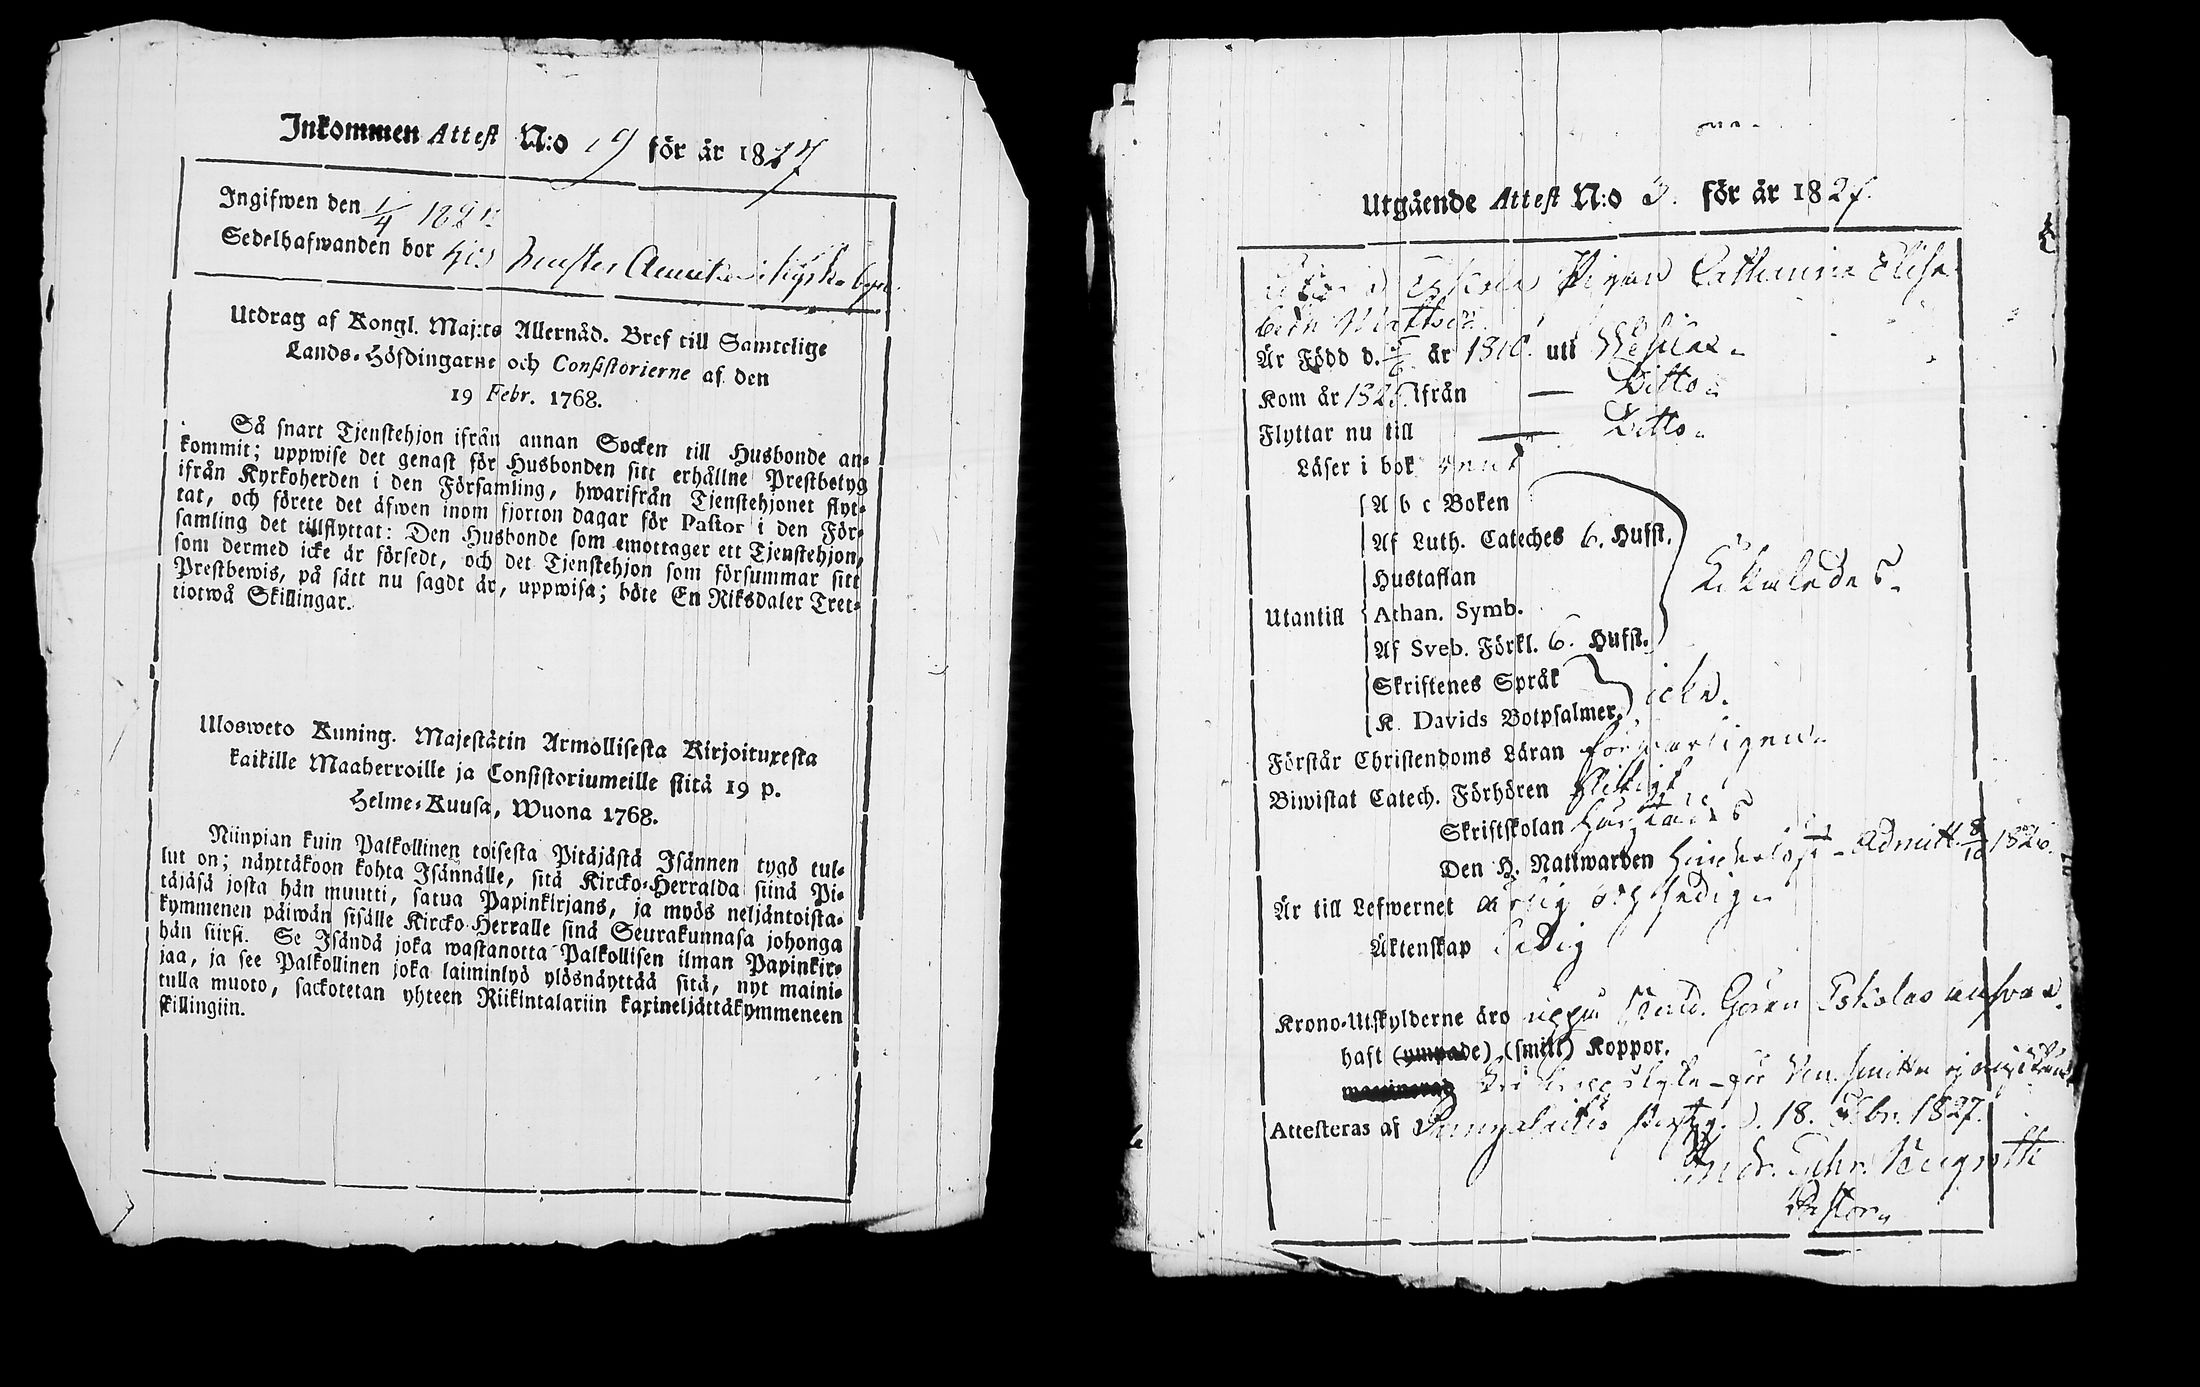 Inkommen Attest N:o 19 för år 1827
Ingifwen den 1/4 1827
Sedelhafwanden bor hos i Kyrkobyn
Utdrag af Kongl. Maj:ts Allernåd. Bref till Samtelige
Lands-Höfdingarne och Consistorierne af den
19 Febr. 1768.
Så snart Tjenstehjon ifrån annan Socken till Husbonde an-
kommit; uppwise det genast för Husbonden sitt erhållne Prestbetyg
ifrån Kyrkoherden i den Församling, hwarifrån Tjenstehjonet flyt-
tat, och förete det äfwen inom fjorton dagar för Pastor i den För-
samling det tillflyttat: Den Husbonde som emottager ett Tjenstehjon,
som dermed icke är försedt, och det Tjenstehjon som försummar sitt
Prestbewis, på sätt nu sagdt är, uppwisa; böte En Riksdaler Tret-
tiotwå Skillingar.
Ulosweto Kuning. Majestätin Armollisesta Kirjoituxesta
kaikille Maaherroille ja Consistoriumeille siitä 19 p.
Helme-Kuusa, Wuona 1768.
Niinpian kuin Palkollinen toisesta Pitäjästä Isännen tygö tul-
lut on; näyttäkoon kohta Isännälle, sitä Kircko-Herralda siinä Pi-
täjäsä josta hän muutti, saatua Papinkirjans, ja myös neljäntoista-
kymmenen päiwän sisälle Kircko-Herralle sinä Seurakunnasa johonga
hän siirsi. Se Isändä joka wastanotta Palkollisen ilman Papinkir-
jaa, ja see Palkollinen joka laiminlyö ylösnäyttää sitä, nyt maini-
tulla muoto, sackotetan yhteen Riikintalariin kaxineljättäkymmeneen
skillingiin.
Utgående Attest N:o 3. för år 1827.
Pigan Catharina Elisa-
beth Mattsdr.
Är Född d. år 1810. uti
Kom år 1825. ifrån — Ditto
Flyttar nu till — Ditto
Läser i bok
A b c Boken
Af Luth. Cateches 6. Hufst.
Hustaflan
Utantill Athan. Symb.
Af Sveb. Förkl. 6. Hufst.
Skriftenes Språk
K. Davids Botpsalmer. icke.
Förstår Christendoms Läran förswarligen
Biwistat Catech. Förhören flitigt
Skriftskolan
Den H. Nattwarden - Admitt. 8/10 1826.
Är till Lefwernet ärlig och sedig
Äktenskap Ledig
Krono-Utskylderne äro uppå Göran ansvar.
haft (smitt) Koppor.
Attesteras af d. 18. Febr. 1827.
Pastor